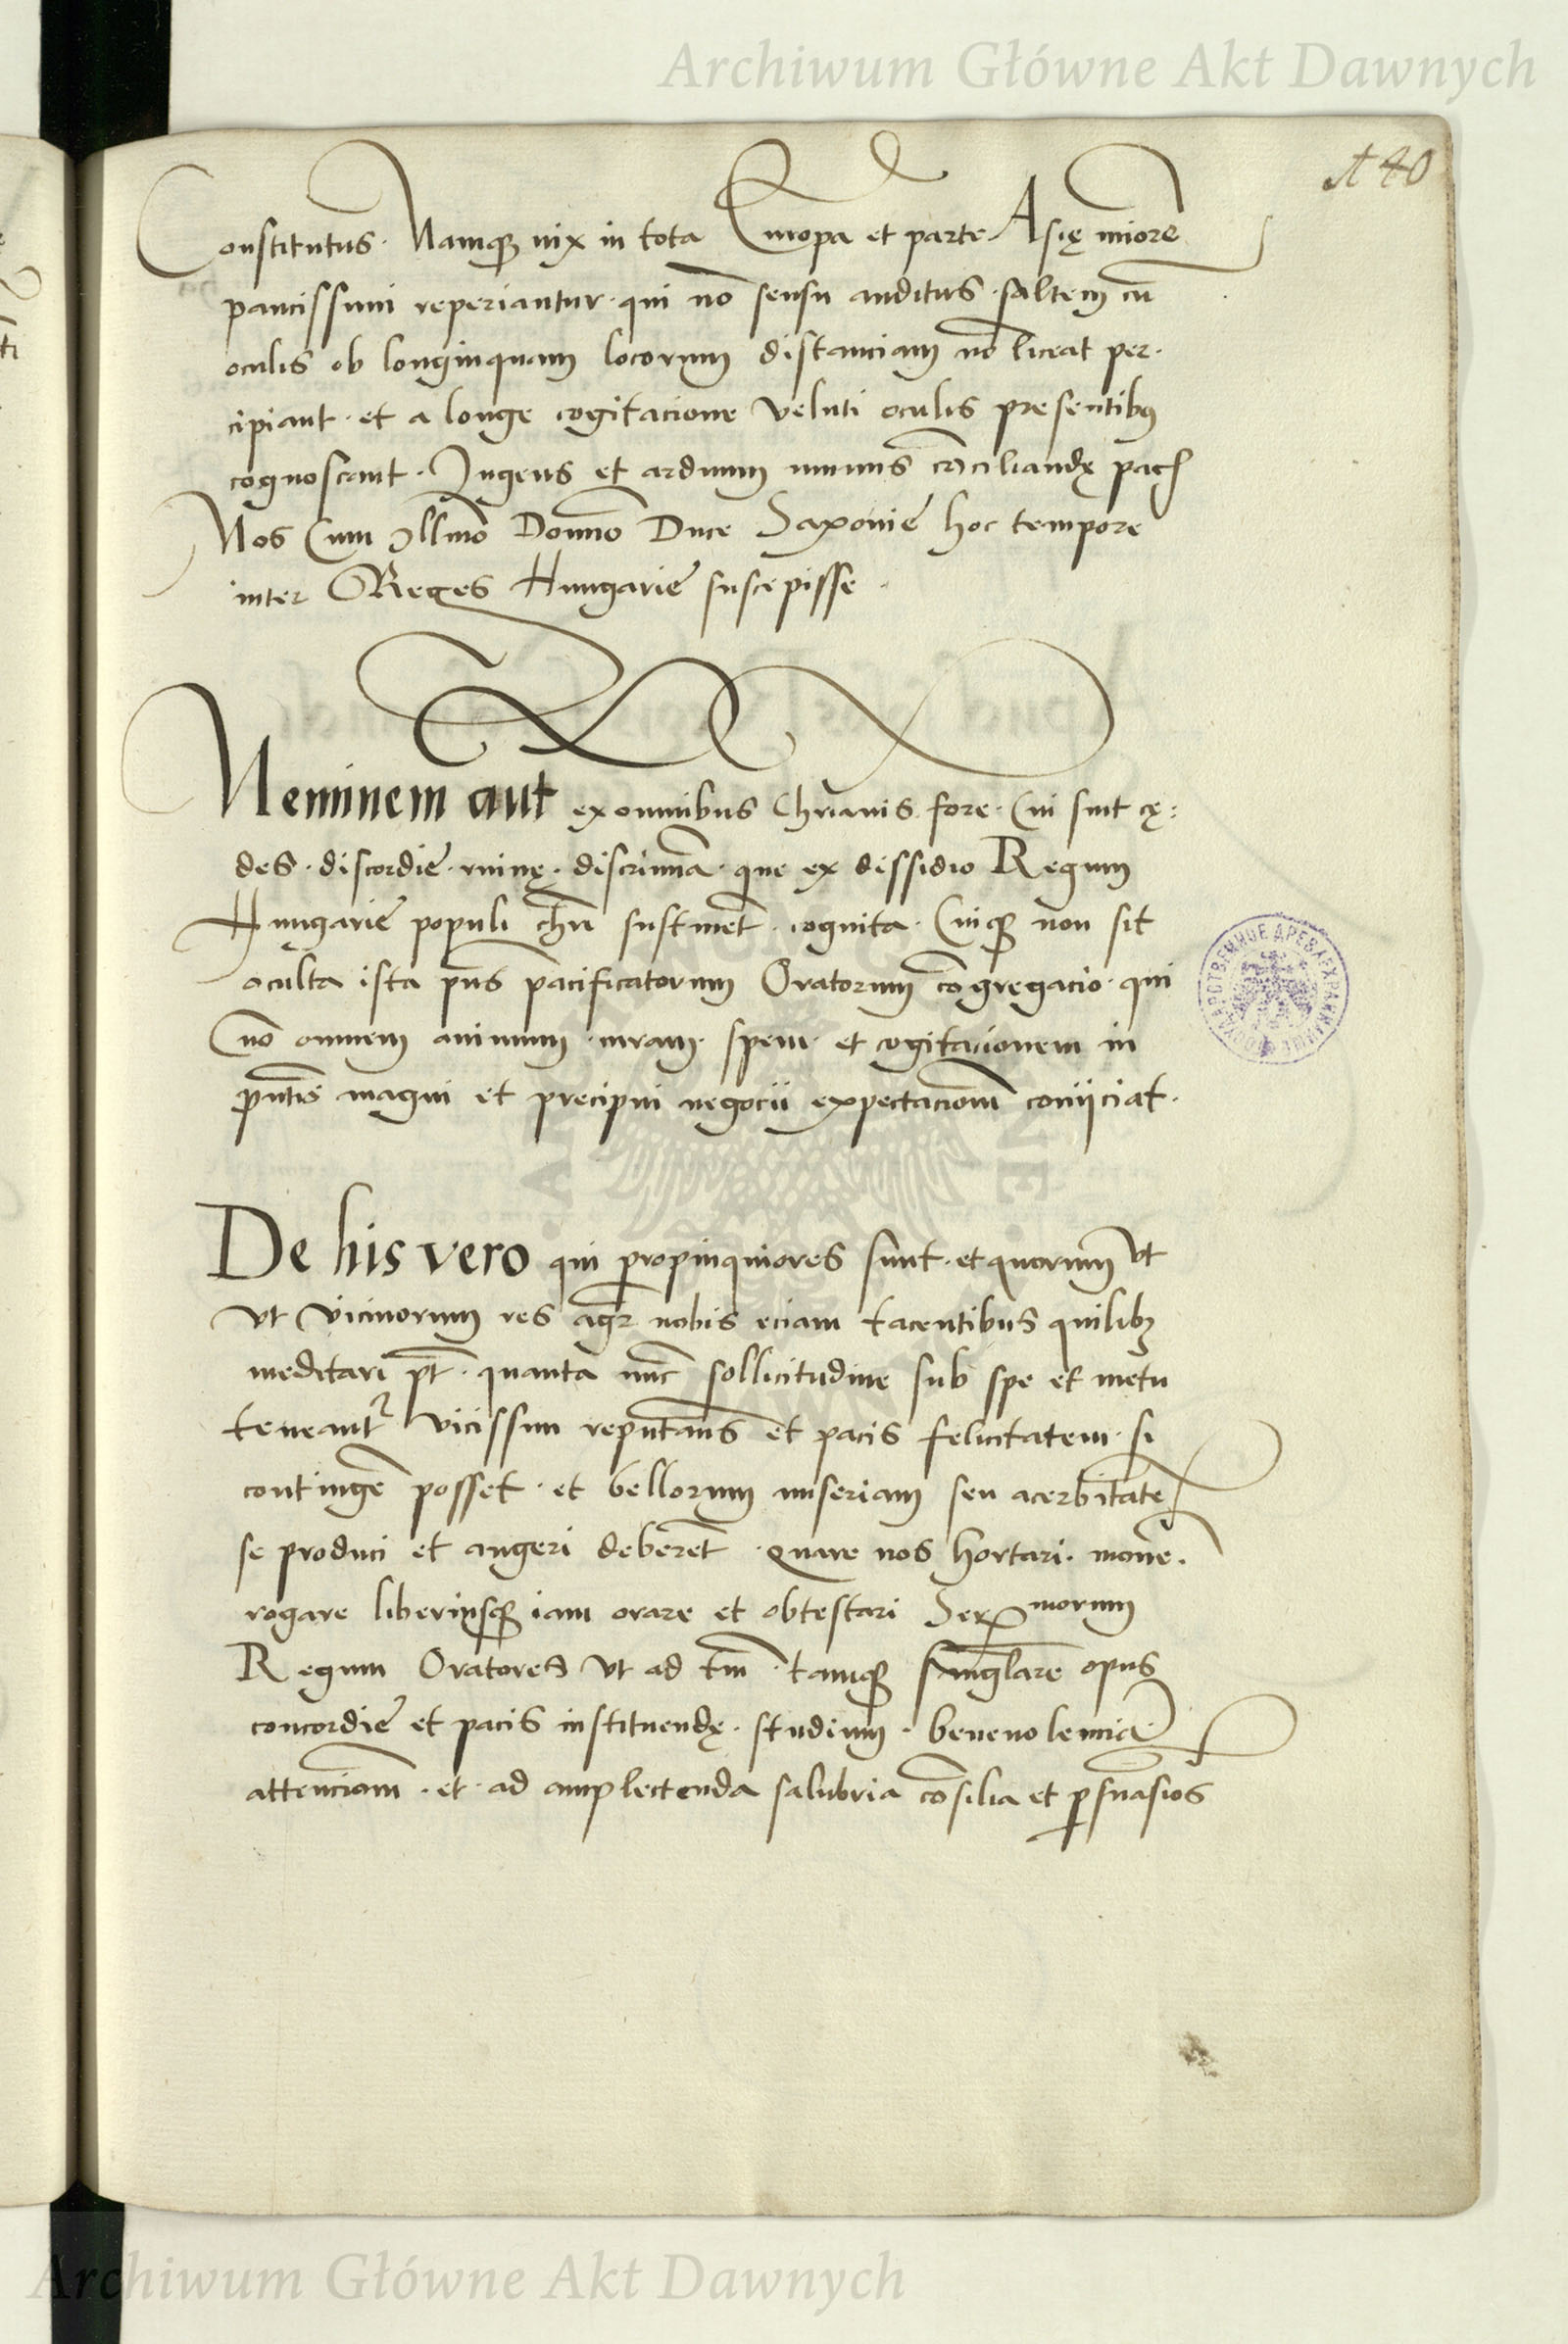 Archiwum Główne Akt Dawnych
140
Constitutus. Namq̃ vix in tota Europa et parte Asię miorẽ
paucissimi reperiantur. qui nõ sensu auditus. saltem cũ
oculis ob longinquam locorum distanciam nõ liceat per-
cipiant. et a longe cogitacione veluti oculis presentibꝯ
cognoscant. Ingens et arduum munus cõciliandę pacꝭ
Nos Cum Illmõ Domnõ Duce Saxonię hoc tempore
inter Reges Hungarię suscepisse.
Neminem aut̃ ex omnibus Chrianis fore. Cui sint cę:
des. discordię. ruinę. discrimĩa. que ex dissidio Regum
Hungarię populi chrñ sustinẽt. cognita. Cuiq̃ non sit
oculta ista pñs pacificatorum Oratorum cõgregacio. qui
nõ omnem animum. curam. spem. et cogitacionem in
pñtis magni et precipui negocii expectacionẽ coniiciat.
De his vero qui propinquiores sunt. et quorum vt
vt vicinorum res agr̃ nobis eciam tacentibus quilibꝫ
meditari pt̃. quanta nũc sollicitudine sub spe et metu
teneantr̃ vicissim reputans et pacis felicitatem. si
contingẽ posset. et bellorum miseriam seu acerbitatẽ
se produci et augeri deberẽt. Quare nos hortari. monẽ.
rogare liberiusq̃ iam orare et obtestari Ser^morum
Regum Oratores vt ad tm̃. tamq̃ singlarẽ opus
concordię et pacis instituendę. studium. beneuolenciã.
attencionẽ. et ad amplectenda salubria cõsilia et ꝑsuasiõs
Archiwum Główne Akt Dawnych